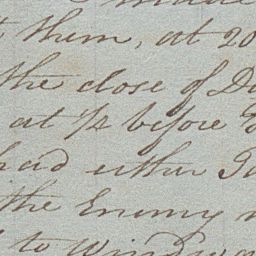 them, at 20
the close of D
at 1/2 before
had either
the Enemy
to Windwa